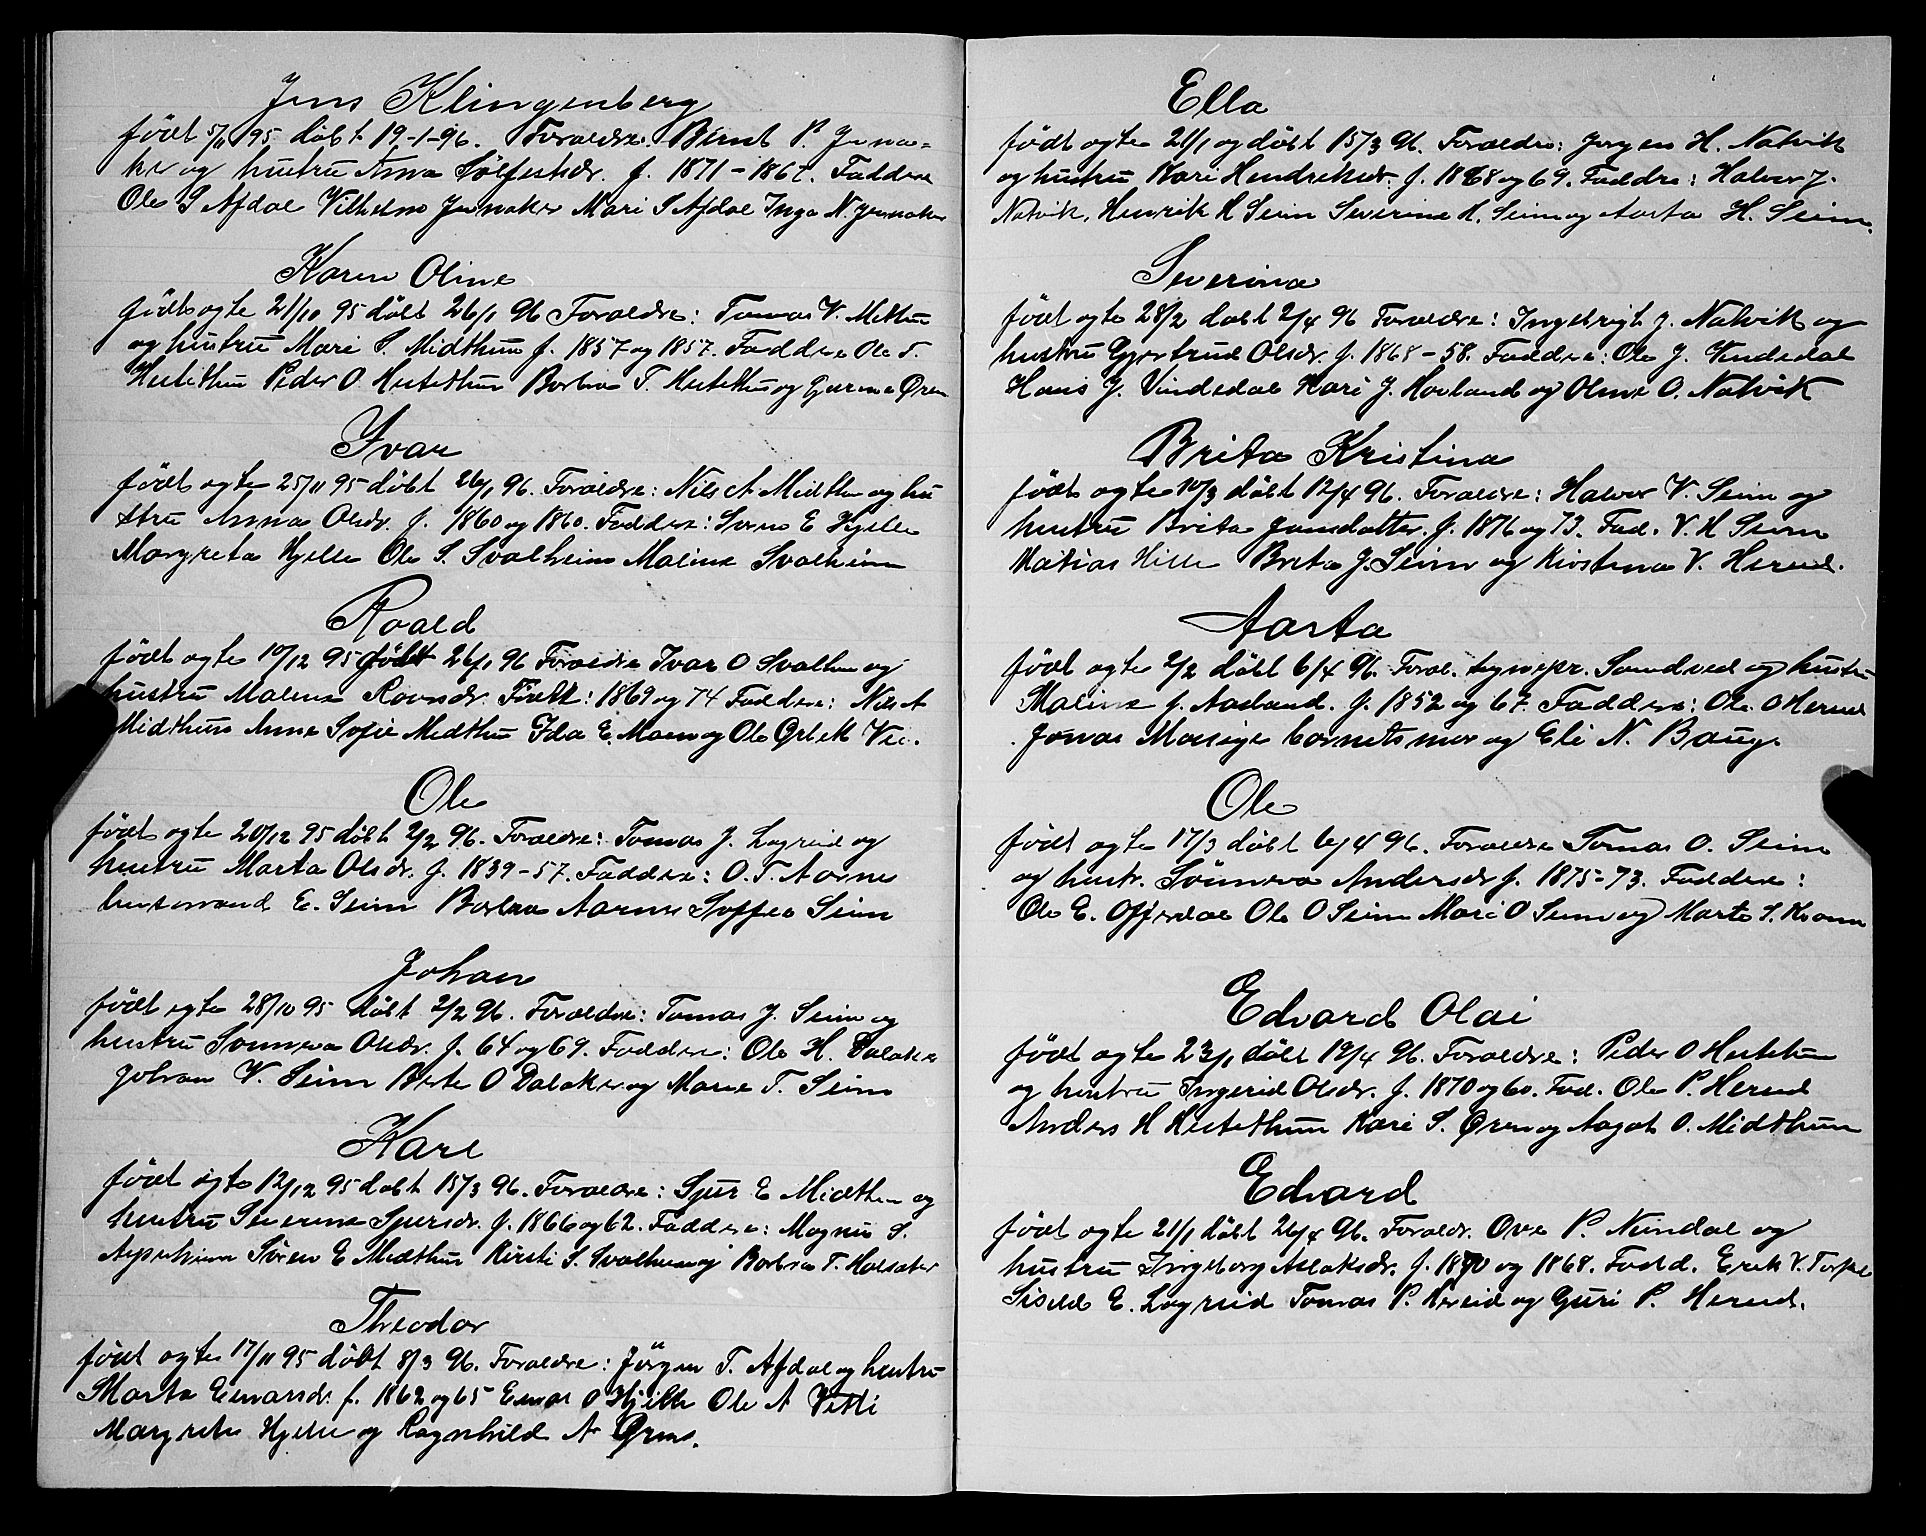 Jens Klingenberg
født 5/11 95 døbt 19-1-96. Foraeldre. Bernt P. Jerna-
ker og hustru Anna Sølfestsdr. f. 1871-1867. Faddere
Ole S Afdal Vilhelm Jernaker Mari S Afdal Inga N. Jernaker
Karen Oline
født ogte 21/10 95 døbt 26/1 96 Foraeldre: Tomas V. Midthun
og hustru Mari S. Midthun f. 1857 og 1857. Faddere Ole T.
Hestethun Peder O Hestethun Borlina T. Hestethun og Øren
Ivar
født ogte 25/11 95 døbt 26/1 96. Foraeldre: Nils A Midthun og hu
stru Anna Olsdr. f. 1860 og 1860. Faddere: Søren E Hjelle
Margreta Hjelle Ole S. Svalheim Malina Svalheim
Roald
født ogte 10/12 95 født 26/1 96 Foraeldre Ivar O Svalheim og
hustru Malena Ravnsdr. Født: 1869 og 74 Faddere: Nils A
Midthun Anna Sofie Midthun Ida E. Moen og Ole Vee.
Ole
født ogte 20/12 95 døbt 2/2 96. Foraeldre: Tomas J. Lægreid og
hustru Marta Olsdr. f. 1839-57. Faddere: O. T. Aarnes
lensmand E. Seim Borlina Aarnes Soffie Seim
Johan
født egte 28/10 95 døbt 2/2 96. Foraeldre: Tomas J. Seim og
hustru Sønneva Olsdr. f. 64 og 69. Faddere: Ole H. Dalaker
Johan V. Seim Berte O Dalaker og Marie T. Seim
Kare
født egte 12/12 95 døbt 15/3 96. Foraeldre: Sjur E Midthun og
hustru Severina Sjursdr. f. 1866 og 62. Faddere: Magnus S.
Asperheim Søren E Midthun Kirsti S. Svalheim og Borlina T. Holsæter
Theodor
født ogte 17/11 95 døbt 8/3 96. Foraeldre: Jörgen T. Afdal og hustru
Marta Einarsdr. f. 1862 og 65 Einar O Hjelle Ole A Vetti
Margreta Hjelle og Ragnhild A Øren.
Ella
født ogte 21/1 og døbt 15/3 96. Foraeldre: Jørgen H. Natvik
og hustru Kari Hendriksdr. f. 1868 og 69. Faddre: Halvor J.
Natvik, Henrik H Seim Severina H. Seim og Aasta H. Seim.
Severina
født ogte 28/2 døbt 2/4 96 Foraeldre: Ingebrigt J. Natvik og
hustru Gjertrud Olsdr. f. 1868-58. Faddere: Ole J. Vindedal
Hans J. Vindedal Kari J. Hovland og Oline O. Natvik
Brita Kristina
født ogte 10/3 døbt 12/4 96. Foraeldre: Halvor V. Seim og
hustru Brita Jensdatter. f. 1876 og 73. Fad. V. H Seim
Matias Hille Brita J. Seim og Kristina V. Hereid.
Aasta
født ogte 2/2 døbt 6/4 96. Foral. sognepr. Sandved og hustru
Malina f. Aasland. f. 1852 og 67. Faddere: Ole O Hereid
Jonas Moesige Cornets mor og Eli N. Bauge
Ole
født ogte 17/3 døbt 6/4 96. Foraeldre Tomas O. Seim
og hustr. Sönneva Andersdr f. 1875-73. Faddere:
Ole E. Offerdal Ole O Seim Mari O Seim og Marta S. Kvamm
Edvard Olai
født ogte 23/1 døbt 19/4 96. Foraeldre: Peder O Hestethun
og hustru Ingerid Olsdr. f. 1870 og 60. Fad. Ole P. Hereid
Anders H Hestethun Kari S. Øren og Aagot O. Midthun
Edvard
født ogte 21/1 døbt 26/4 96. Foraeldr. Ove P. Nundal og
hustru Ingeborg Aslaksdr. f. 1870 og 1868. Fadd. Erik V.
Sissela E. Lægreid Tomas P. Hereid og Guri P. Hereid.